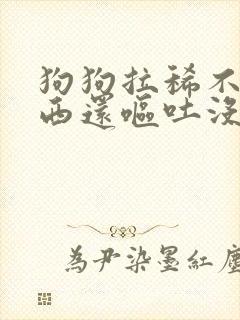 狗狗拉稀不
西還嘔吐沒
為尹染墨紅塵